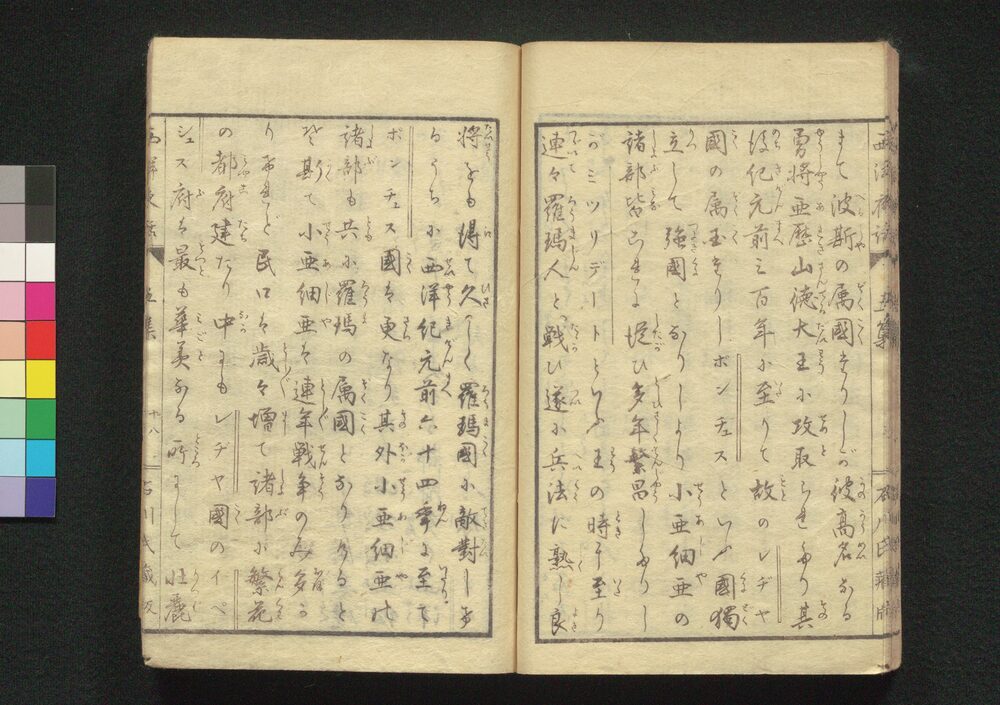 まて波斯の属國なりしが彼高名なる
勇将亜歴山徳大王に攻取られたり其
後紀元前三百年に至りて故のレヂヤ
國の属土なりしポンチュスといふ國獨
立して強國となりしより小亜細亜の
諸部皆これに従ひ多年繁昌したりし
がミツリデートといふ王の時に至り
連々羅瑪人と戦ひ遂に兵法に熟し良
将をも得て久しく羅瑪國に敵對した
るうちに西洋紀元前六十四年に至て
ポンチュス國は更なり其外小亜細亜の
諸部も共に羅瑪の属國となりけると
ぞ斯て小亜細亜は連年戦争のみ多か
りけれど民口は歳々増て諸部に繁花
の都府建たり中にもレヂヤ國のイペ
シュス府は最も華美なる所にして壮麗
五集
十八